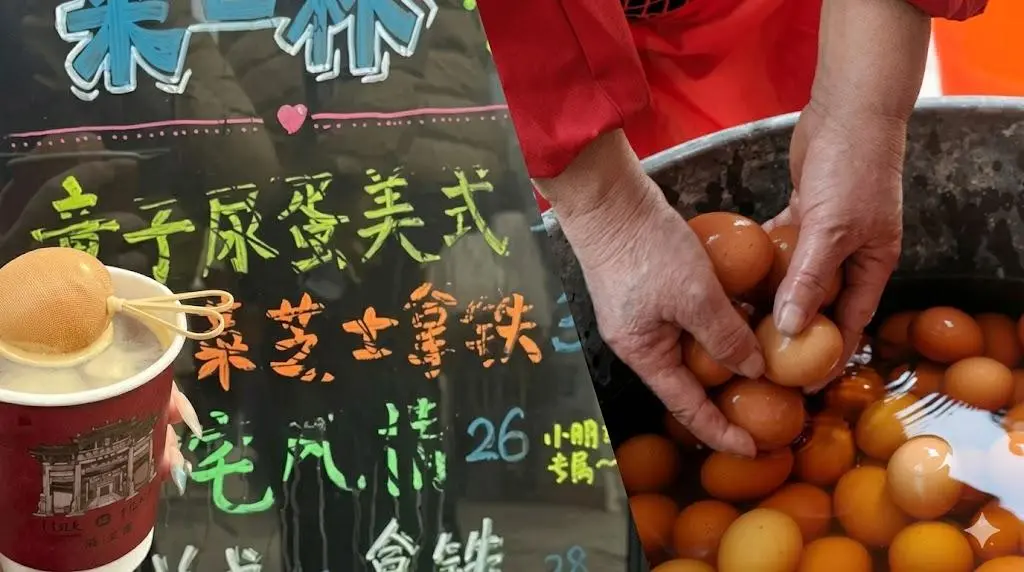 来一杯
童子尿蛋美式
菜芝士拿铁
宅风情 26 小朋
拿铁 28